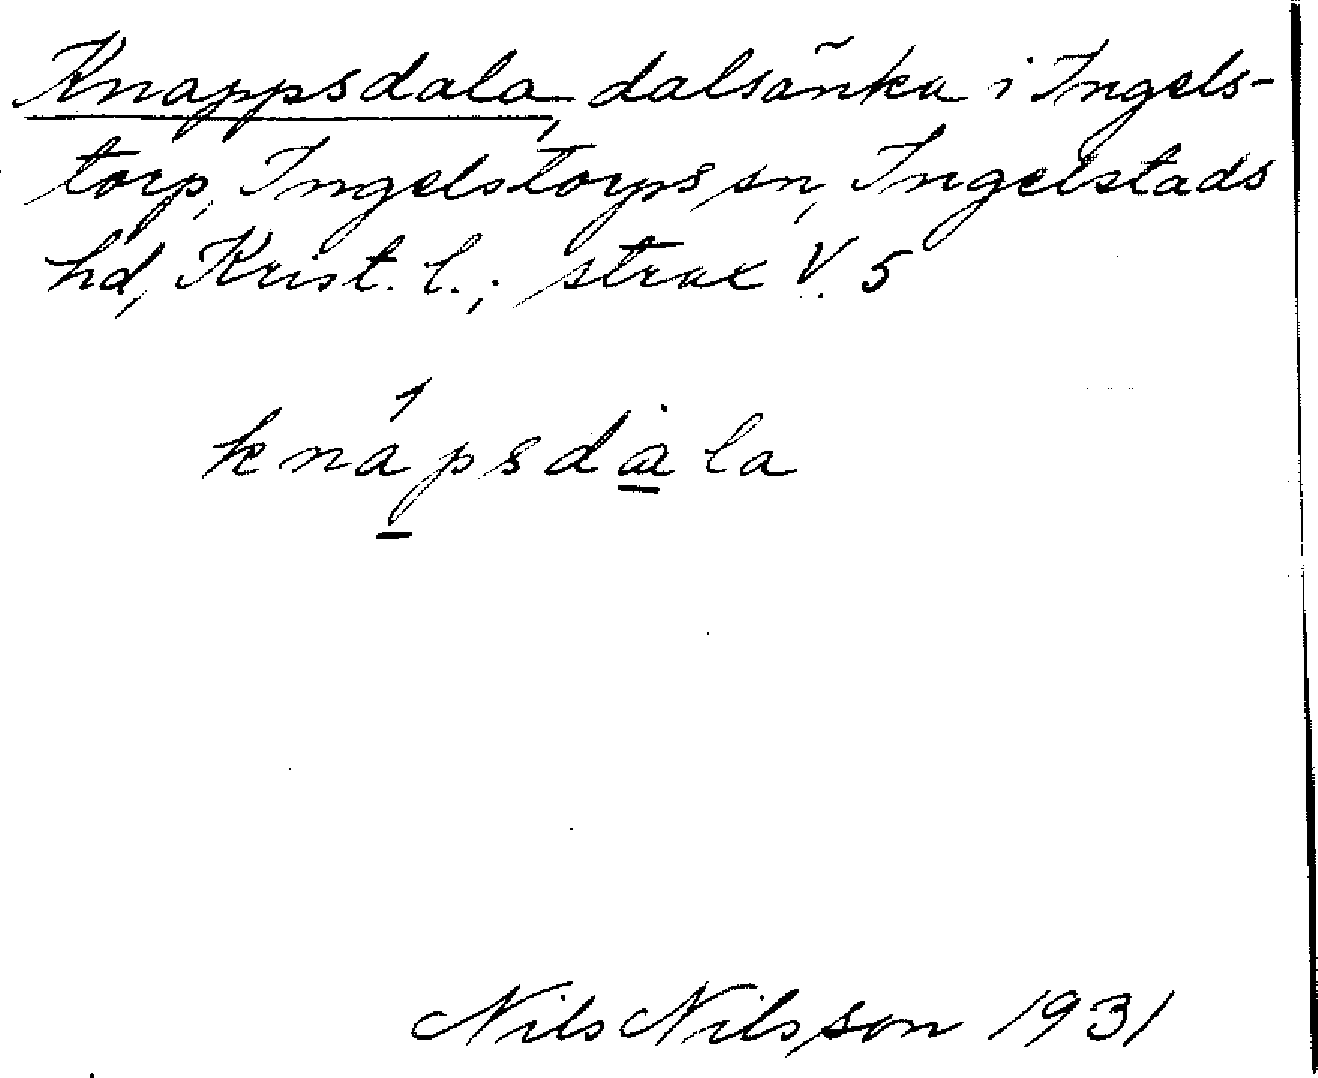 Knappsdala, dalsänka i Ingels-
torp, Ingelstorps sn, Ingelstads
hd, Krist. l.; strax V. 5
knápsdàla
Nils Nilsson 1931